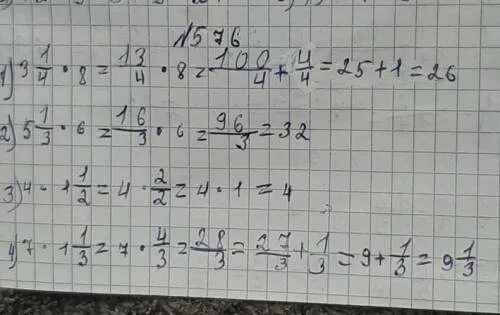 №576
1) 3 1/4 · 8 = 13/4 · 8 = 100/4 + 4/4 = 25 + 1 = 26
2) 5 1/3 · 6 = 16/3 · 6 = 96/3 = 32
3) 4 · 1 1/2 = 4 · 2/2 = 4 · 1 = 4
4) 7 · 1 1/3 = 7 · 4/3 = 28/3 = 27/3 + 1/3 = 9 + 1/3 = 9 1/3